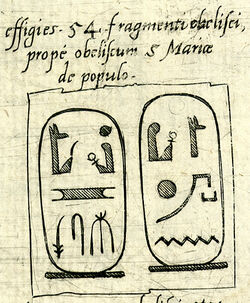 effigies. 54. fragmenti obelisci,
propè obeliscum S Mariæ
de populo.